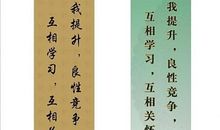 我提升，良性竞争
互相学习，互相
我提升，良性竞争，
互相学习，互相关怀